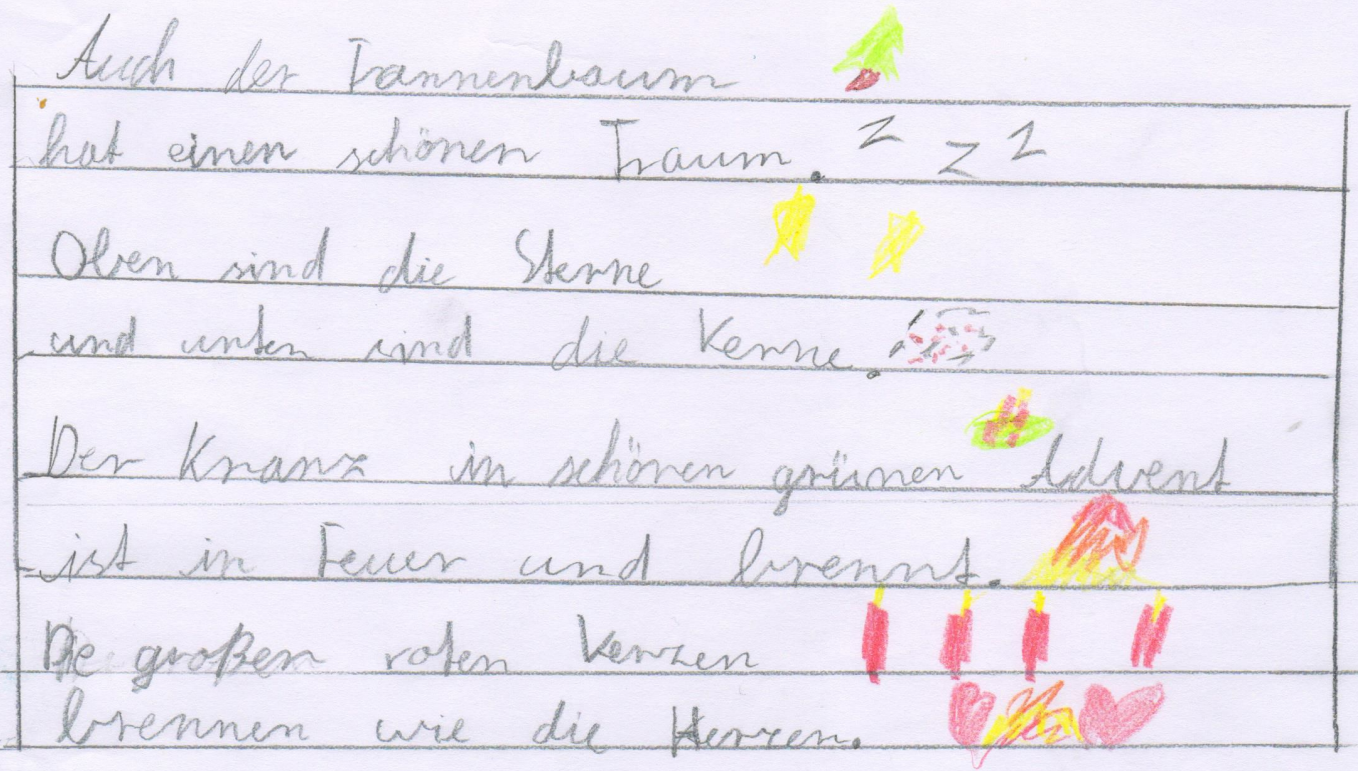 Auch der Tannenbaum
hat einen schönen Traum. z z z
Oben sind die Sterne
und unten sind die Kerne.
Der Kranz in schönen grünen Advent
ist in Feuer und brennt.
Die großen roten Kerzen
brennen wie die Herzen.